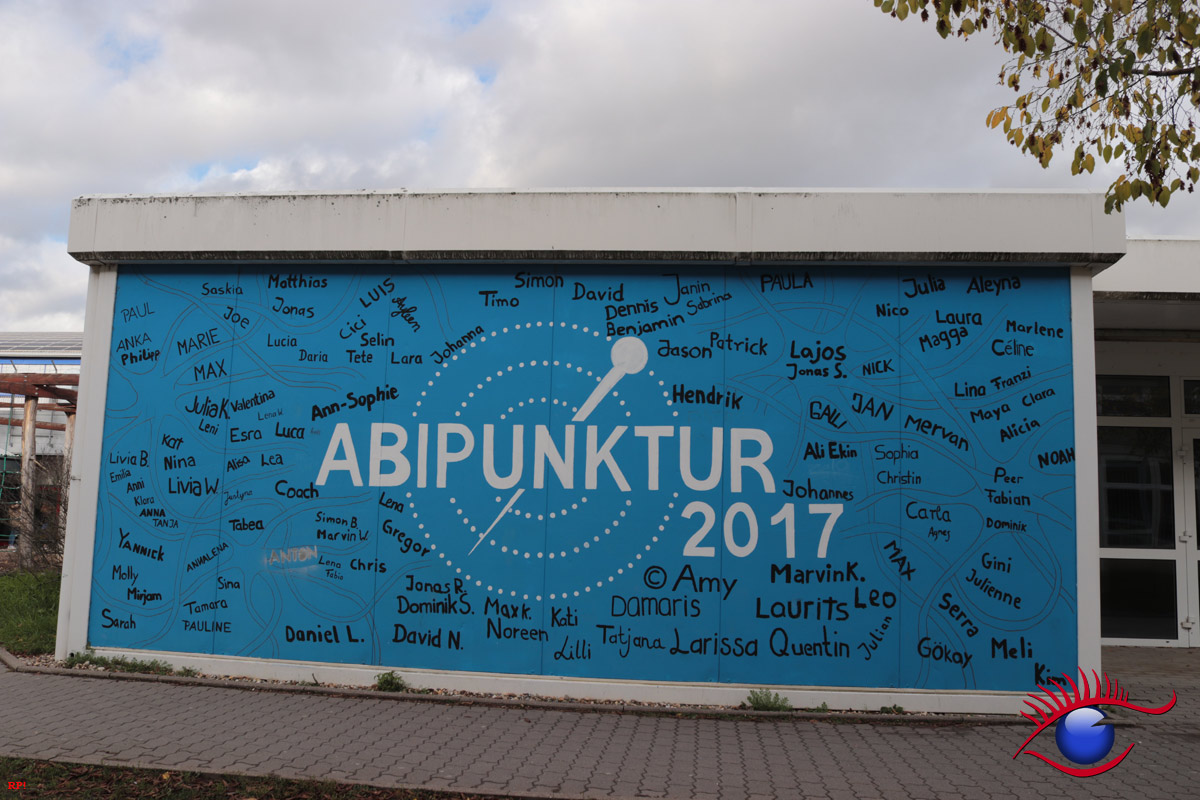 ABIPUNKTUR
2017
PAUL
Saskia
Matthias
LUIS
Ayleen
Timo
Simon
David
Dennis
Janin
Sabrina
Benjamin
PAULA
Nico
Julia
Aleyna
ANKA
Philipp
MARIE
Joe
Jonas
Cici
Selin
Lucia
Daria
Tete
Lara
Johanna
Jason
Patrick
Lajos
Jonas S.
NICK
Laura
Magga
Marlene
Céline
MAX
Julia K
Valentina
Lena W
Leni
Esra
Luca
Ann-Sophie
Hendrik
GALI
JAN
Mervan
Lina
Franzi
Maya
Clara
Alicia
Kat
Nina
Alisa
Lea
Livia B.
Emilia
Anni
Klara
Livia W.
Justyna
Coach
Lena
Ali Ekin
Sophia
Christin
NOAH
Peer
Fabian
Johannes
ANNA
TANJA
Tabea
Simon B.
Marvin W.
Gregor
Carla
Agnes
Dominik
Yannick
ANNALENA
ANTON
Lena
Fabio
Chris
MAX
Gini
Julienne
Molly
Mirjam
Sina
Jonas R.
Dominik S.
Max K.
Noreen
Kati
© Amy
Damaris
Marvin K.
Laurits
Leo
Serra
Sarah
Tamara
PAULINE
Daniel L.
David N.
Lilli
Tatjana
Larissa
Quentin
Julian
Gökay
Meli
Kim